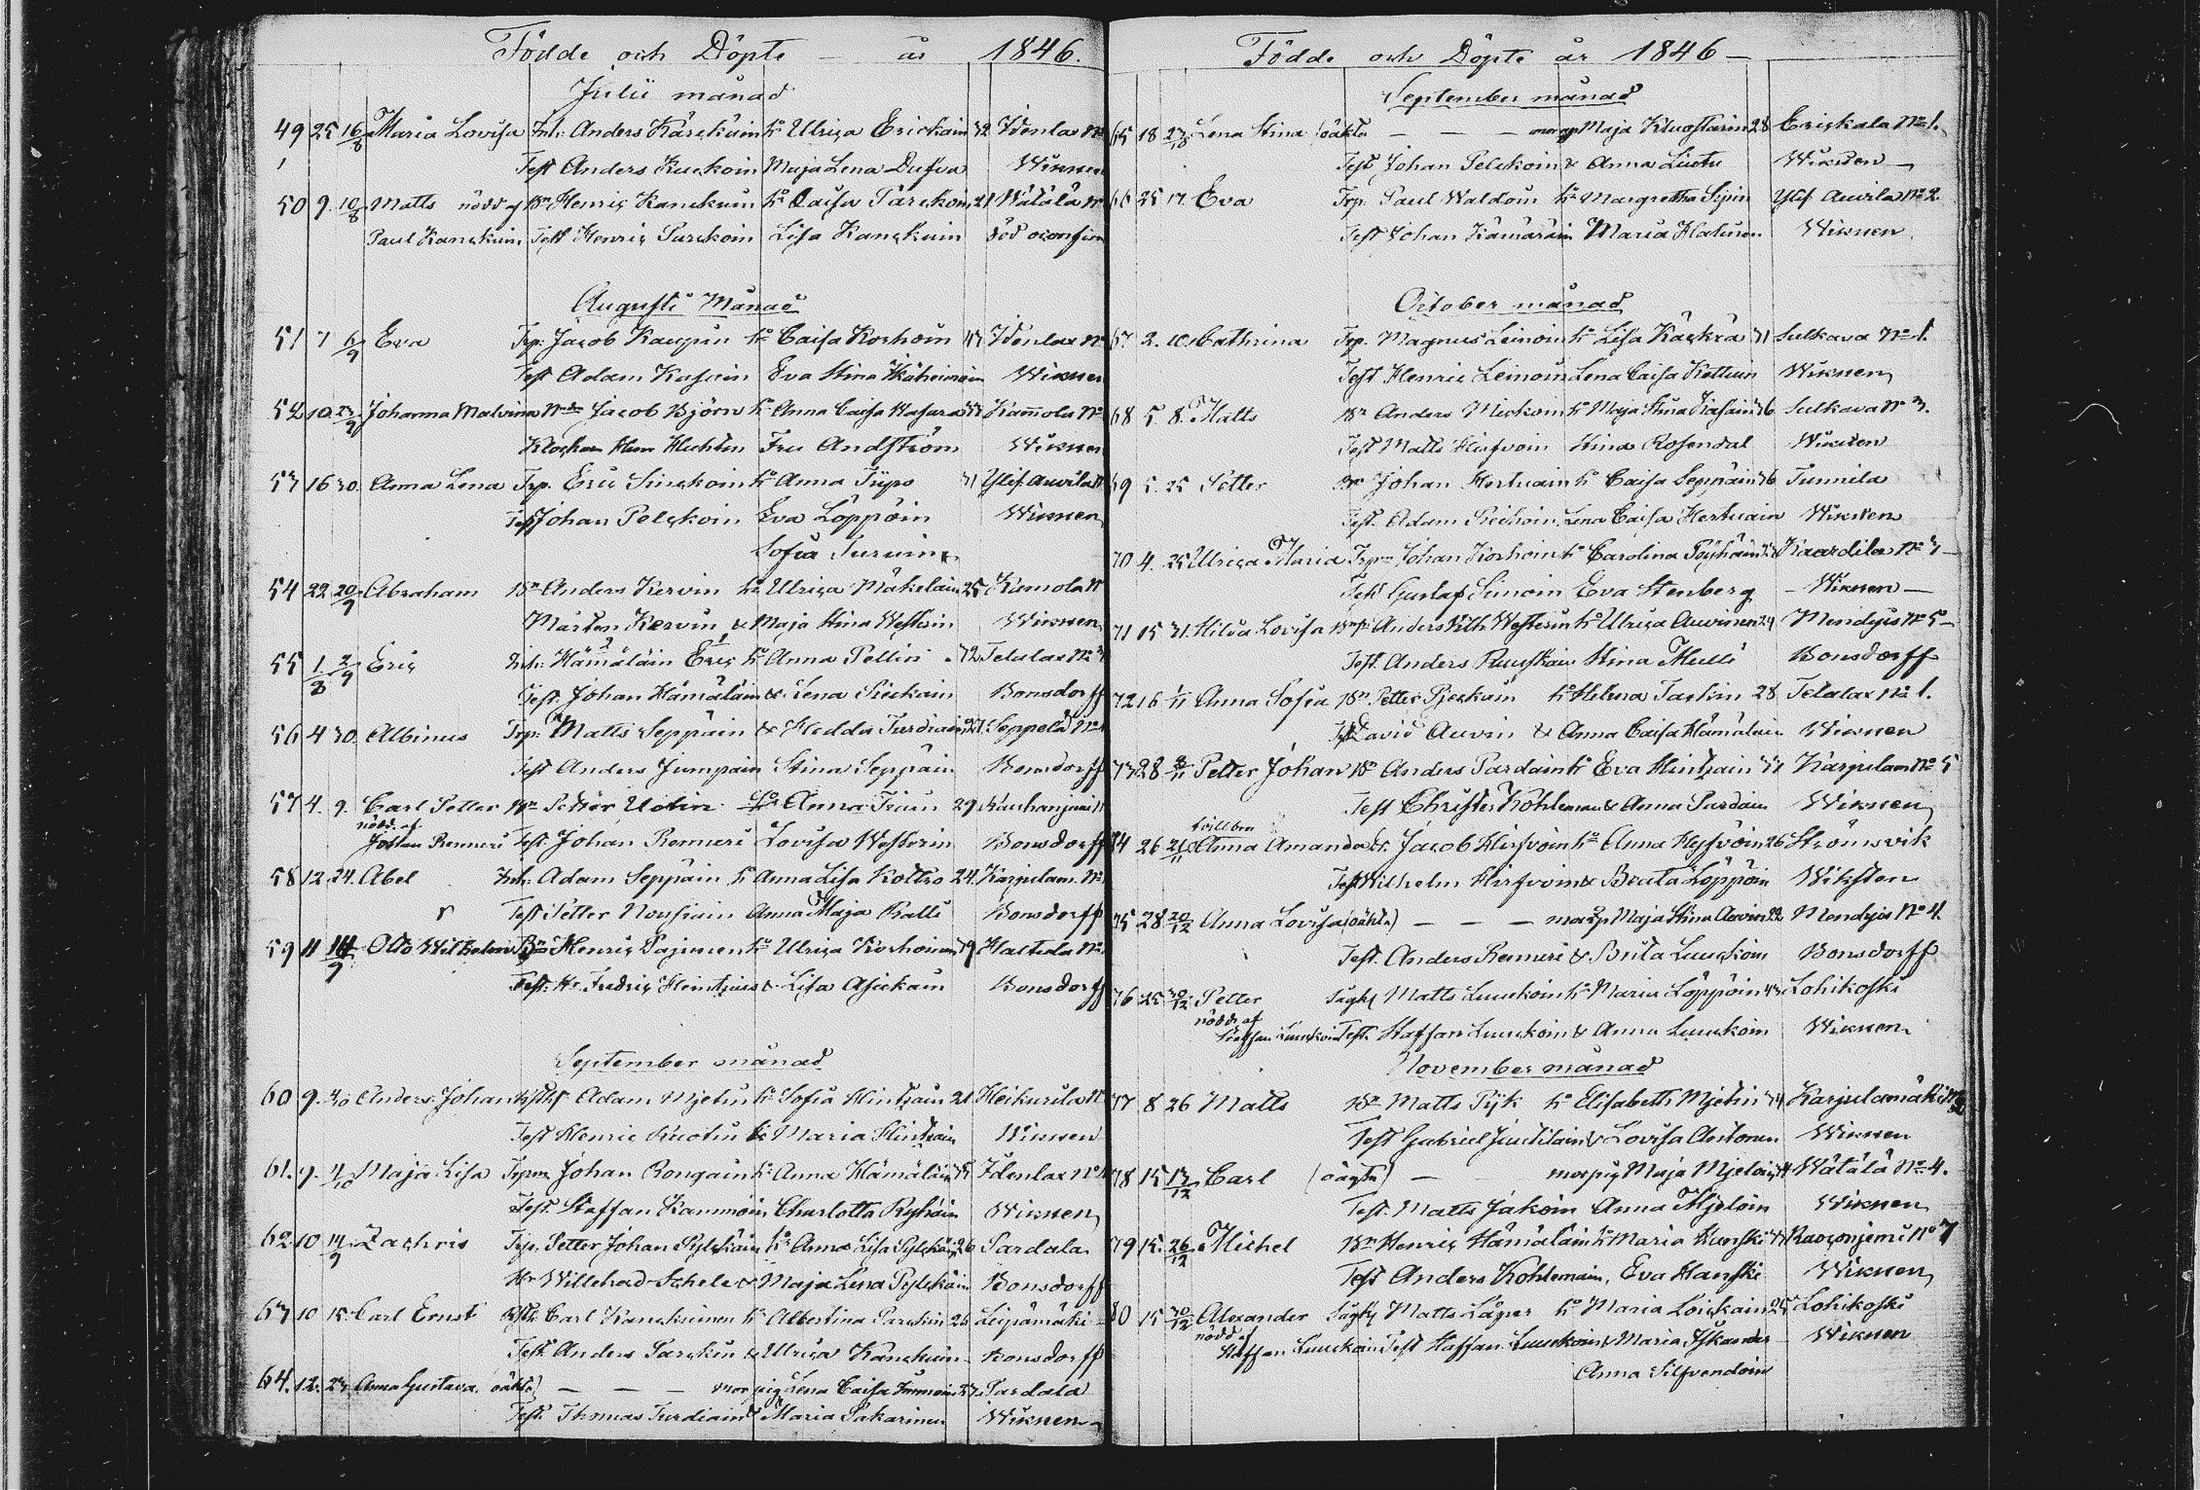 Födde och Döpte — år 1846.
Julii månad
49 25 16/8 Maria Lovisa Inh: Anders Kärckäin ho Ulrica Erickain 32 Idenlax No
Test Anders Kuckoin Maja Lena Dufva Wiknen
50 9. 10/8 Matts nödd af Bn Henric Kanckuin ho Caisa Pärckoin 21 Wätälä No
Paul Kanckuin Test Henric Purckoin Lisa Kanckuin
Augusti Månad
51 7 6/9 Eva Trp: Jacob Kaupin ho Caisa Korhoin 43 Idenlax No
Test Adam Kasain Eva Stina Wiknen
52 10 Johanna Malvina Jacob Björn ho Anna Caisa Hasara 33 Kaimola No
Fru Andström Wiknen
53 16 30. Anna Lena Trp. Eric Sinckoin ho Anna Tijps 31 Ylis. Auvila No
Test Johan Pelckoin Eva Löppöin Wiknen
Sofia Turuin
54 22 20/9 Abraham Bn Anders Kervin ho Ulrica Mäkeläin 25 Kimola No
Mårten Kervin & Maja Stina Westerin Wiknen
55 1/8 2/9 Eric Inh: Hämäläin Eric ho Anna Pellin 32 Telulax No
Test. Johan Hämäläin & Lena Bonsdorff
56 4 30. Albinus Trp: Matts Seppäin & Hedda Turdiain 21. Seppelä No
Test Anders Jumpain Stina Seppäin Bonsdorff
57 4. 9. Carl Petter Bn Petter Uotin ho Anna Trium 29
nödd. af
Johan Remmeri Test. Johan Remmeri Lovisa Westerin Bonsdorff
58 12. 24. Abel Inh: Adam Seppäin ho Anna Lisa Kottro 24. Karjulam. No
Test: Petter Nousiain Anna Maja Ralli Bonsdorff
59 11 14/9 Otto Wilhelm Bn Henric Pajunen ho Ulrica Korhoinen 39 Haltula No
Test: Hr Fredric Heintzius & Lisa Asickain Bonsdorff
September månad
60 9. 4/10 Anders Johan Adam Mjetin ho Sofia Hintzain 21 Heikurila No
Test Henric Kuotin & Maria Hintzain Wiknen
61. 9. 4/10 Maja Lisa Trpm Johan Rongain ho Anna Hämäläin 35 Idenlax No
Test. Staffan Kammoin Charlotta Ryhäin Wiknen
62 10 14/9 Zachris Trp. Petter Johan Pylckäin ho Anna Lisa Pylckäin 26 Pardala
Hr Willehad Schele & Maja Lena Pylckäin Bonsdorff
63 10 15. Carl Ernst Carl Kanckuinen ho Albertina Parckin 26 Leipämäki
Test. Anders Parckin & Ulrica Kanckuin Bonsdorff
64. 12. 27. Anna Gustava (oäkta) — — — mor pig Lena Caisa Immoin 27. Pardala
Test. Thomas Turdiain & Maria Pakarinen Wiknen
Födde och Döpte år 1846 —
September månad
65 18 27/18 Lena Stina (oäkta — — — mor pig Maja Klustarin 28 Erickala No 1.
Test Johan Pelckoin & Anna Liuttu Wiksten
66 25 17. Eva Trp. Paul Waldoin ho Margretha Sipin Ylis. Auvila No 2
Test Johan Kämäräin Maria Hatunen Wiknen
October månad
67. 2. 10. Cathrina Trp. Magnus Leinoin ho Lisa Käckrä 31 Sulkava No 1.
Test Henric Leinoin Lena Caisa Kettuin Wiknen
68 5 8. Matts Bn Anders Mickoin ho Maja Stina Kasain 36 Sulkava No 3.
Test Matts Hirfvoin Stina Rosendal Wiksten
69 5. 25 Petter Bn Johan Hertuain ho Caisa Seppäin 36 Tunnila
Test. Adam Lena Caisa Hertuain Wiksten
70 4. 25 Ulrica Maria Trp Johan Korhoin ho Carolina Pöyhöin Kaardila No 3
Test Gustaf Simoin Eva Stenberg — Wiknen —
71 15 31. Hilda Lovisa Anders Wilh Westerin ho Ulrica Auvinen 29 Mendyis No 5
Test. Anders Ruuskain Stina Mulli Bonsdorff
72 16 1/11 Anna Sofia Bn Petter Pjeckäin ho Helena Taskin 28 Telalax No 1.
Test David Auvin & Anna Caisa Hämäläin Wiknen
73 28 8/11 Petter Johan Bn Anders Pardain ho Eva Hintzain 31 Karjulam No 5
Test Christer Kohlemain & Anna Pardain Wiknen
tvillbrn
74 26 21/11 Anna Amanda Jacob Hirfvoin ho Anna Hyfvöin 26 Strömsvik
Test Wilhelm Hirfvoin & Beata Löppöin Wiksten
75 28 20/12 Anna Lovisa (oäkta) — — — mor pig Maja Stina Auvin 22 Mendyis No 4.
Test. Anders Remmeri & Brita Luuckoin Bonsdorff
76 25 30/12 Petter Matts Luuckoin ho Maria Löppöin 43 Lohikoski
nödd. af
Staffan Luuckoin Test. Staffan Luuckoin & Anna Luuckoin Wiknen
November månad
77 8 26 Matts Bn Matts Pijk ho Elisabeth Mjetin 34 Karjulamäki No
Test Gabriel Juutilain & Lovisa Antonen Wiknen
78 15 13/12 Carl (oägta) — — mor pig Maja Mjeloin 34 Wätälä No 4.
Test. Matts Jakoin Anna Mjeloin Wiknen
79 15. 26/12 Michel Bn Henric Hämäläin ho Maria Hanski 37 No 7
Test Anders Kohlemain, Eva Hanski Wiknen
80 15 30/12 Alexander Matts Läger ho Maria Loickain 25 Lohikoski
nödd af
Staffan Luuckoin Test Staffan Luuckoin & Maria Iskander Wiknen
Anna Silfvendoin